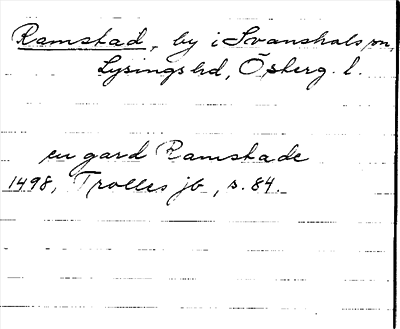 Ramstad, by i Svanshals sn,
Lysings hd, Österg. l.
en gard Ramstade
1498, Trolles jb, s. 84.